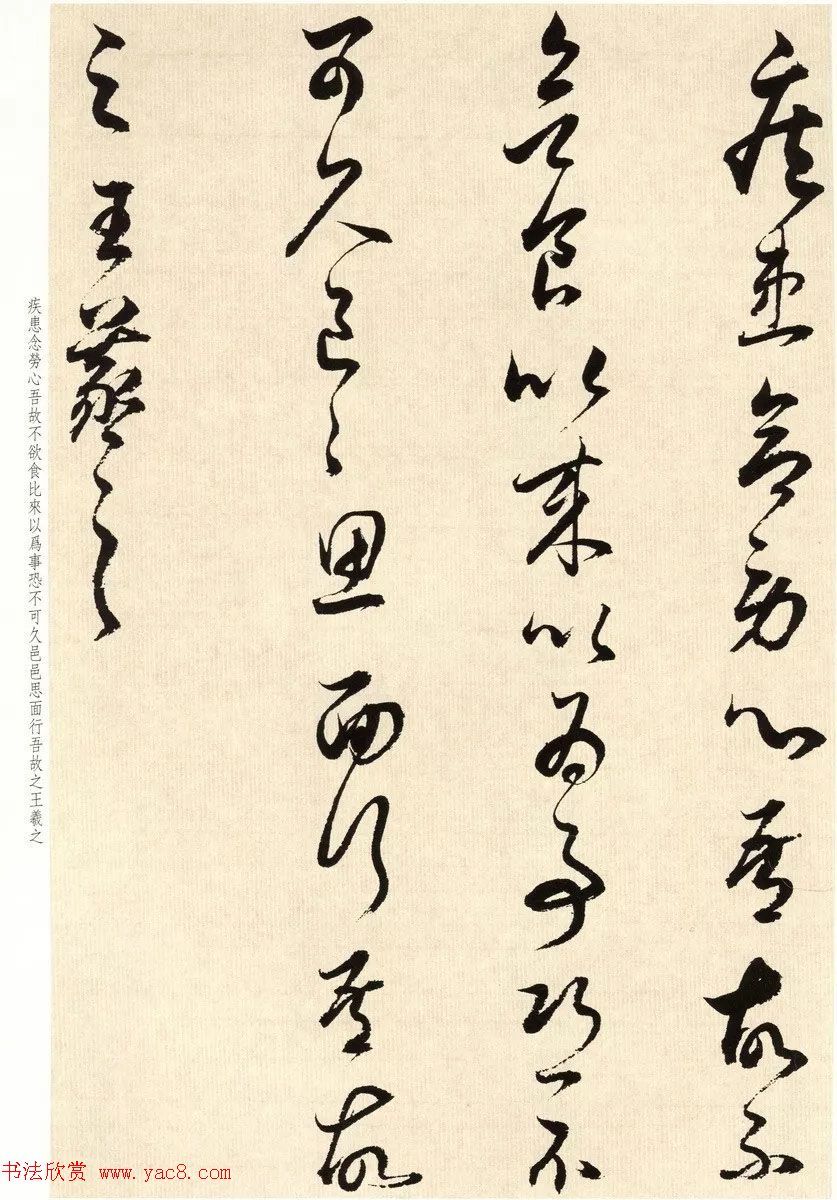 疾患念勞心吾故不
欲食比來以爲事恐不
可久邑邑思面行吾故
之王羲之
疾患念勞心吾故不欲食比來以爲事恐不可久邑邑思面行吾故之王羲之
书法欣赏 www.yac8.com